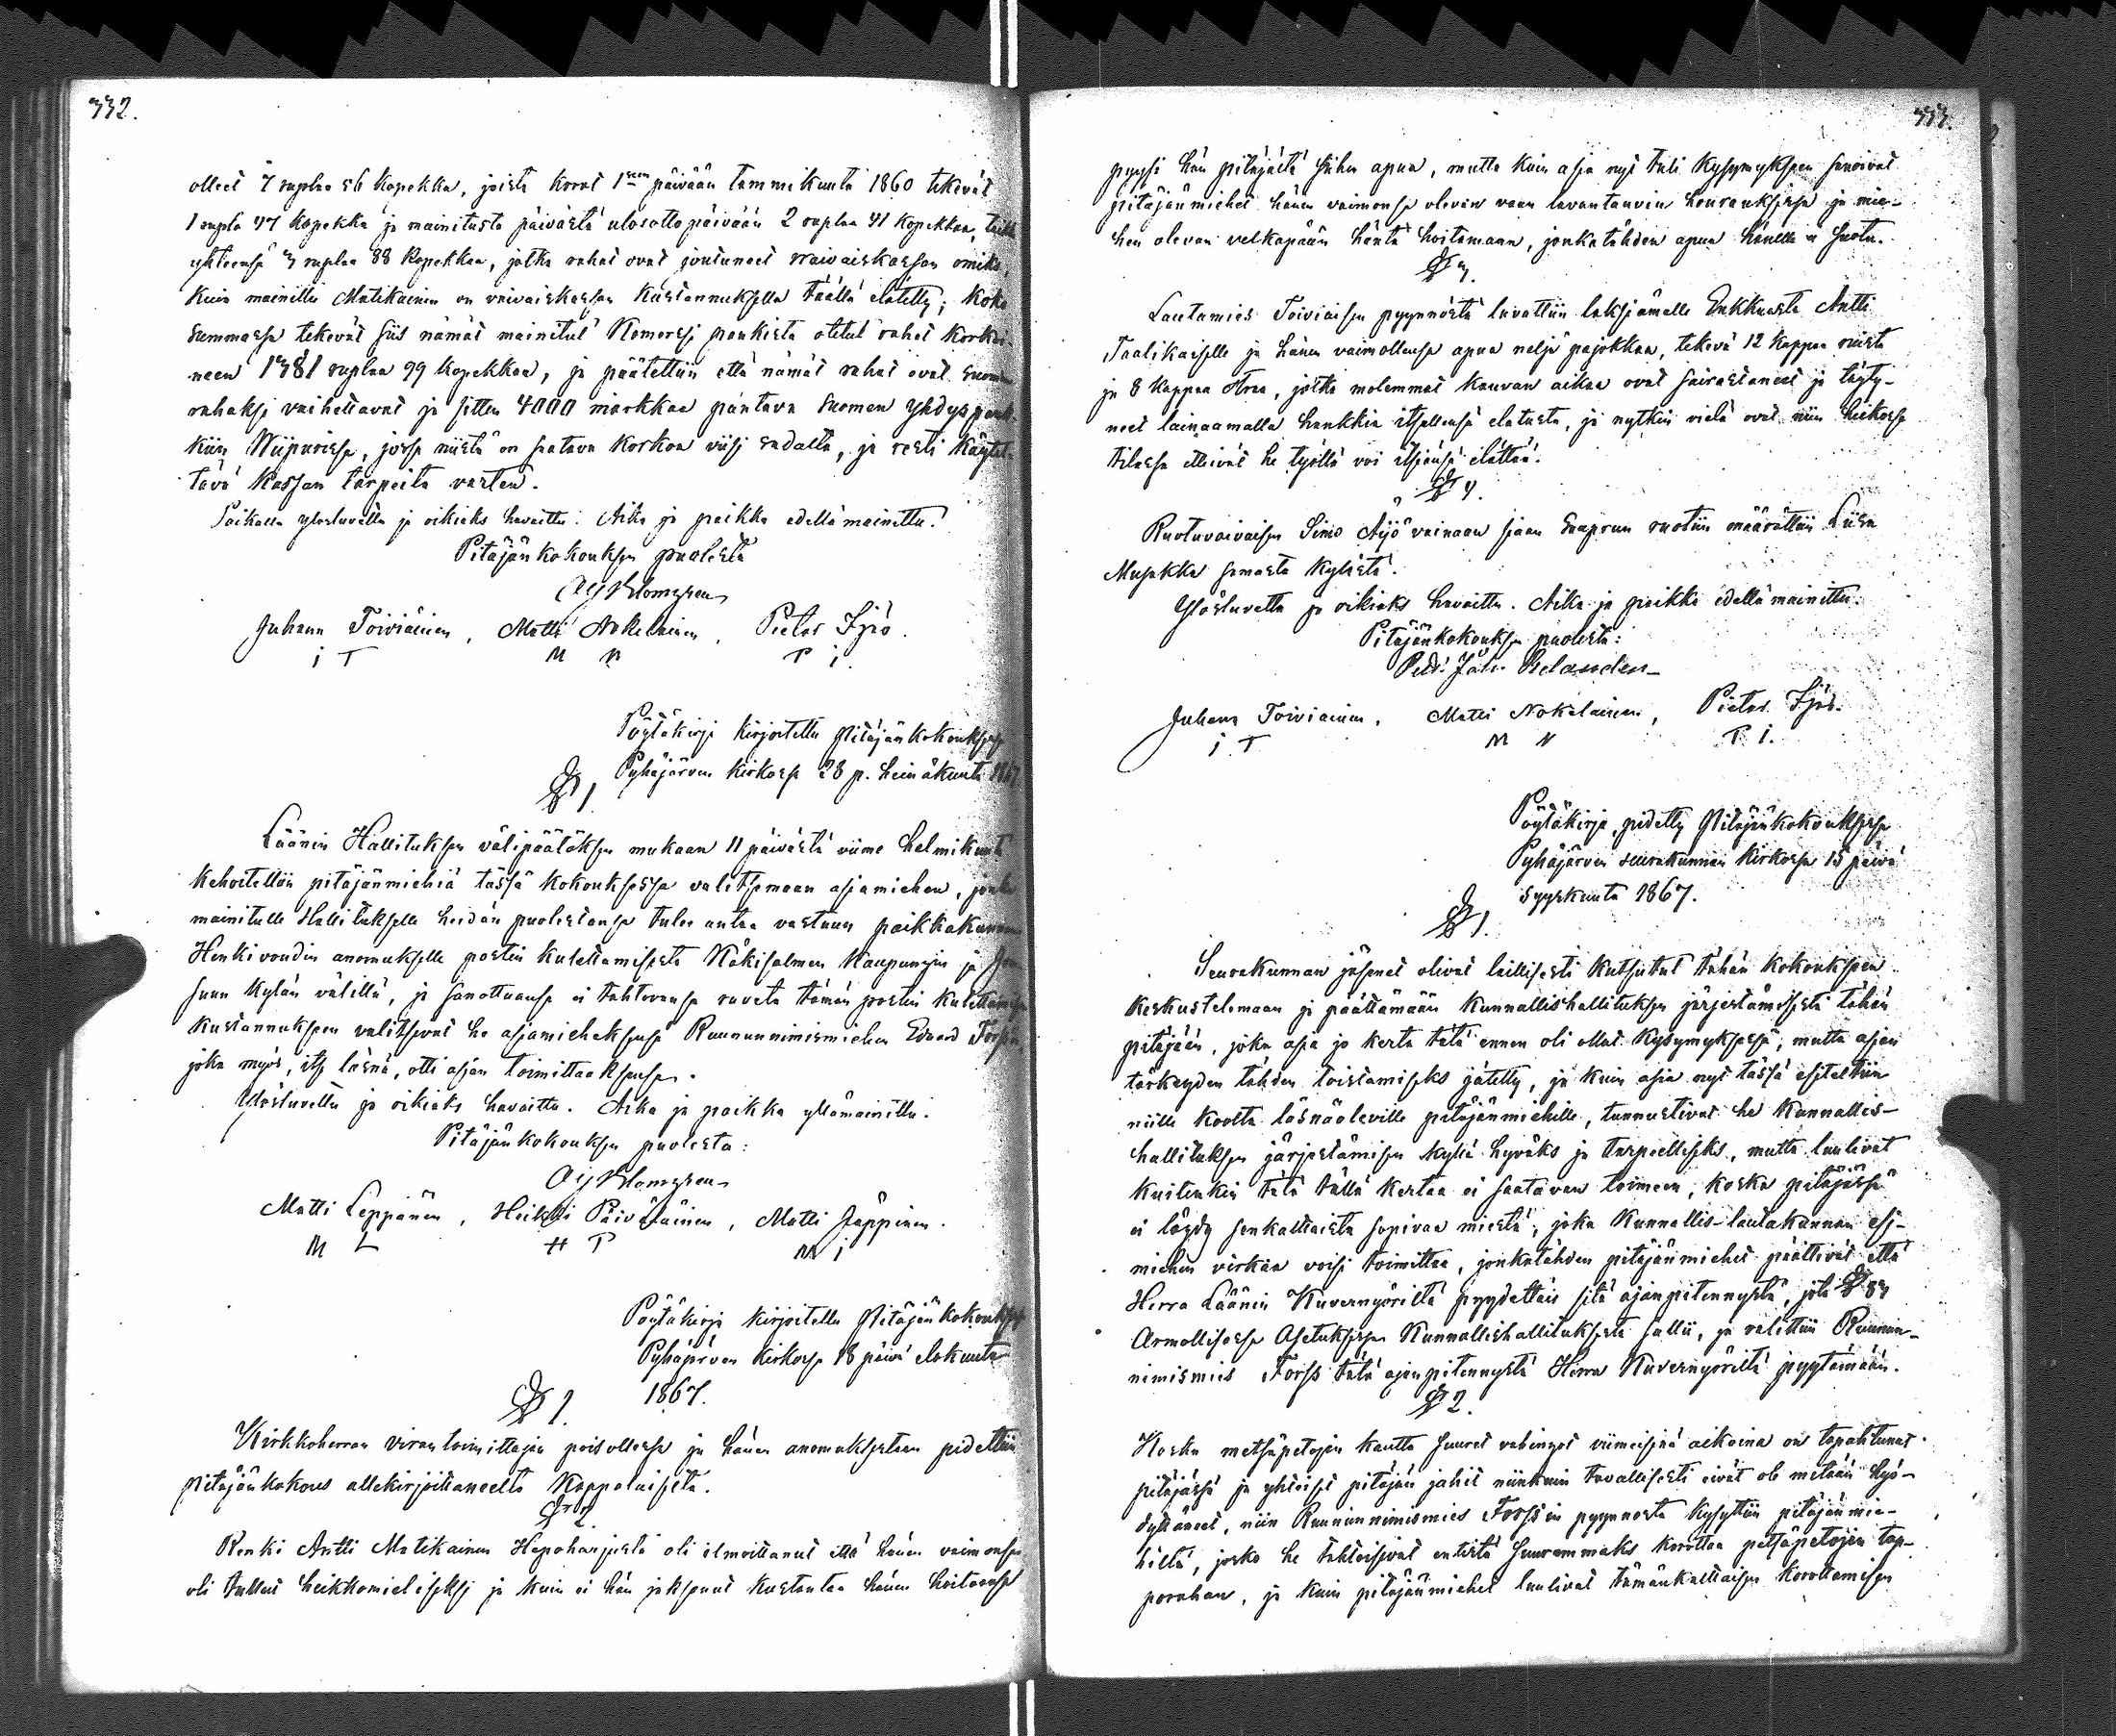 332.
olleet 7 ruplaa 56 kopekka, joista korot 1sen päivään tammikuuta 1860 tekevät
1 rupla 47 kopekka ja mainitusta päivästä ulosottopäivään 2 ruplaa 41 kopekkaa,
yhteensä 3 ruplaa 88 kopekkaa, jotka rahat ovat joutuneet vaivaiskassan omiksi,
kuin mainittu Matikainen on vaivaiskassan kustannuksella täällä elätetty; koko
summassa tekevät siis nämät mainitut Komersi pankista otetut rahat korkoi-
neen 1381 ruplaa 99 kopekkaa, ja päätettiin että nämät rahat ovat Suomen
rahaksi vaihettavat ja sitten 4000 markkaa pantava Suomen Yhdyspank-
kiin Wiipurissa, jossa niistä on saatava korkoa viisi sadalta, ja resti käytet-
tävä kassan tarpeita varten.
Paikalla ylösluvettu ja oikiaks havaittu. Aika ja paikka edellämainittu.
Pitäjänkokouksen puolesta
A G Blomgren
Juhana Toiviainen, Matti Nokelainen, Pietar Ijäs.
i T M N P i.
Pöytäkirja kirjoitettu Pitäjänkokouksessa
Pyhäjärven kirkossa 28 p. heinäkuuta 1867
§ 1.
Läänin Hallituksen välipäätöksen mukaan 11 päivästä viime helmikuuta
kehoitettiin pitäjänmiehiä tässä kokouksessa valitsemaan asiamiehen, jonka
mainitulle Hallitukselle heidän puolestansa tulee antaa vastaus paikkakunnan
Henkivoudin anomukselle postin kulettamisesta Käkisalmen kaupungin ja
suun kylän välillä, ja sanottuansa ei tahtovansa ruveta tämän postin kulettamisen
kustannukseen valitsivat he asiamieheksensä Ruununnimismiehen Edvard Forss,
joka myös, itse läsnä, otti asian toimittaaksensa.
Ylösluvettu ja oikiaks havaittu. Aika ja paikka yllämainittu.
Pitäjänkokouksen puolesta:
A G Blomgren
Matti Leppänen, Heikki Päiväläinen, Matti Jäppinen.
M L H P M i
Pöytäkirja kirjoitettu Pitäjänkokouksessa
Pyhäjärven kirkossa 18 päivä elokuuta
§ 1. 1867.
Kirkkoherran virantoimittajan poisollessa ja hänen anomuksestaan pidettiin
pitäjänkokous allekirjoittaneelta Kappalaiselta.
§ 2.
Renki Antti Matikainen Hapohanjusta oli ilmoittanut että hänen vaimonsa
oli tullut heikkomieliseksi ja kuin ei hän jaksanut kustantaa hänen hoitoansa
333.
pyysi hän pitäjältä siihen apua, mutta kuin asia nyt tuli kysymykseen sanoivat
pitäjänmiehet hänen vaimonsa olevan vaan lavantauvin hourauksessa ja mie-
hen olevan velkapään häntä hoitamaan, jonka tähden apua hänelle ei suotu.
§ 3.
Lautamies Toiviaisen pyynnöstä luvattiin leksiämelle Enkkuasta Antti
Taalikaiselle ja hänen vaimollensa apua neljä pajokkaa, tekevä 12 kappaa ruista
ja 8 kappaa otraa, jotka molemmat kauvan aikaa ovat sairastaneet ja täyty-
neet lainaamalla hankkia itsellensä elatusta, ja nytkin vielä ovat niin heikossa
tilassa etteivät he työllä voi itsiänsä elättää.
§ 4.
Ruotuvaivaisen Simo Äijö vainaan siaan Saaprun ruotiin määrättiin Liisa
Musakka samasta kylästä.
Ylösluvettu ja oikiaks havaittu. Aika ja paikka edellämainittu.
Pitäjänkokouksen puolesta:
Petr. Joh. Relander
Juhana Toiviainen, Matti Nokelainen, Pietar Ijäs.
i T M N P i.
Pöytäkirja, pidetty Pitäjänkokouksessa
Pyhäjärven seurakunnan kirkossa 15 päivä
syyskuuta 1867.
§ 1.
Seurakunnan jäsenet olivat laillisesti kutsutut tähän kokoukseen
keskustelemaan ja päättämään Kunnallishallituksen järjestämisestä tähän
pitäjään, joka asia jo kerta tätä ennen oli ollut kysymyksessä, mutta asian
tärkeyden tähden toistamiseks jätetty, ja kuin asia nyt tässä esiteltiin
niille koolta läsnäoleville pitäjänmiehille, tunnustivat he Kunnallis-
hallituksen järjestämisen kyllä hyväks ja tarpeelliseks, mutta luulivat
kuitenkin tätä tällä kertaa ei saatavan toimeen, koska pitäjässä
ei löydy senkaltaista sopivaa miestä, joka Kunnallis-lautakunnan esi-
miehen virkaa voisi toimittaa, jonkatähden pitäjänmiehet päättivät että
Herra Läänin Kuvernyöriltä pyydettäis sitä ajanpitennystä, jota § 83
Armollisessa Asetuksessa Kunnallishallituksesta sallii, ja valittiin Ruunun-
nimismies Forss tätä ajanpitennystä Herra Kuvernyöriltä pyytämään.
§ 2.
Koska metsäpetojen kautta suuret vahingot viimeisinä aikoina on tapahtunut
pitäjässä ja yhteiset pitäjän jahit niinkuin tavallisesti eivät ole mitään hyö-
dyttäneet, niin Ruununnimismies Forss'in pyynnöstä kysyttiin pitäjänmie-
hiltä, josko he tahtoisivat entistä suuremmaks korottaa petsäpetojen tap-
porahan, ja kuin pitäjänmiehet luulivat tämänkaltaisen korottamisen